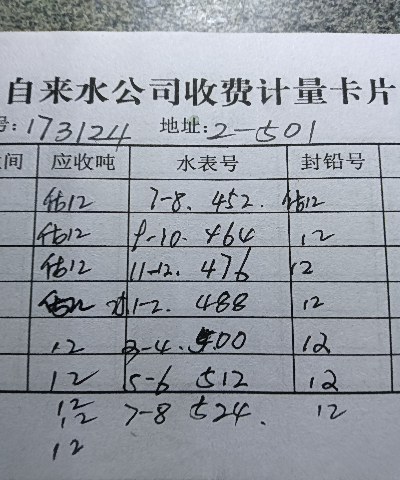 自来水公司收费计量卡片
号:173124 地址:2-501
间 应收吨 水表号 封铅号
估12 7-8. 452. 估12
估12 9-10. 464 12
估12 11-12. 476 12
1-2. 488 12
12 3-4. 500 12
12 5-6 512 12
12 7-8 524. 12
12
12